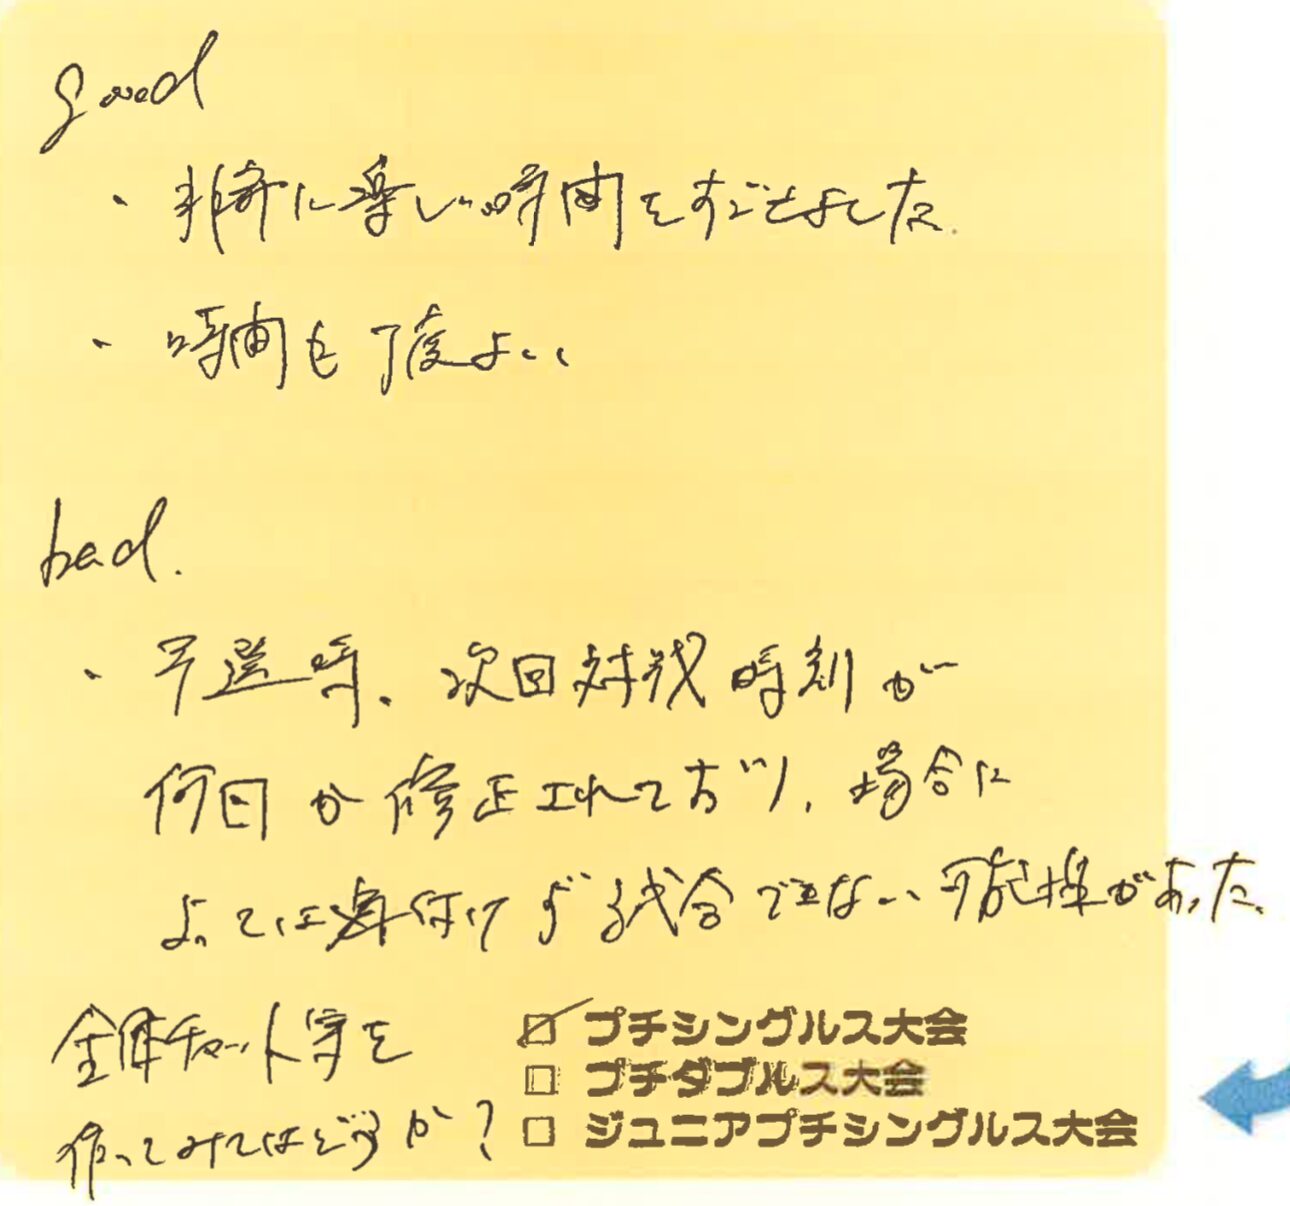 good
・非常に楽しい時間をすごせました.
・時間も丁度よい
bad.
・予選時、次回対戦時刻が
何回か修正されており、場合に
よっては身付けず試合できない可能性があった、
全体チャット等を
作ってみてはどうか？
プチシングルス大会
プチダブルス大会
ジュニアプチシングルス大会